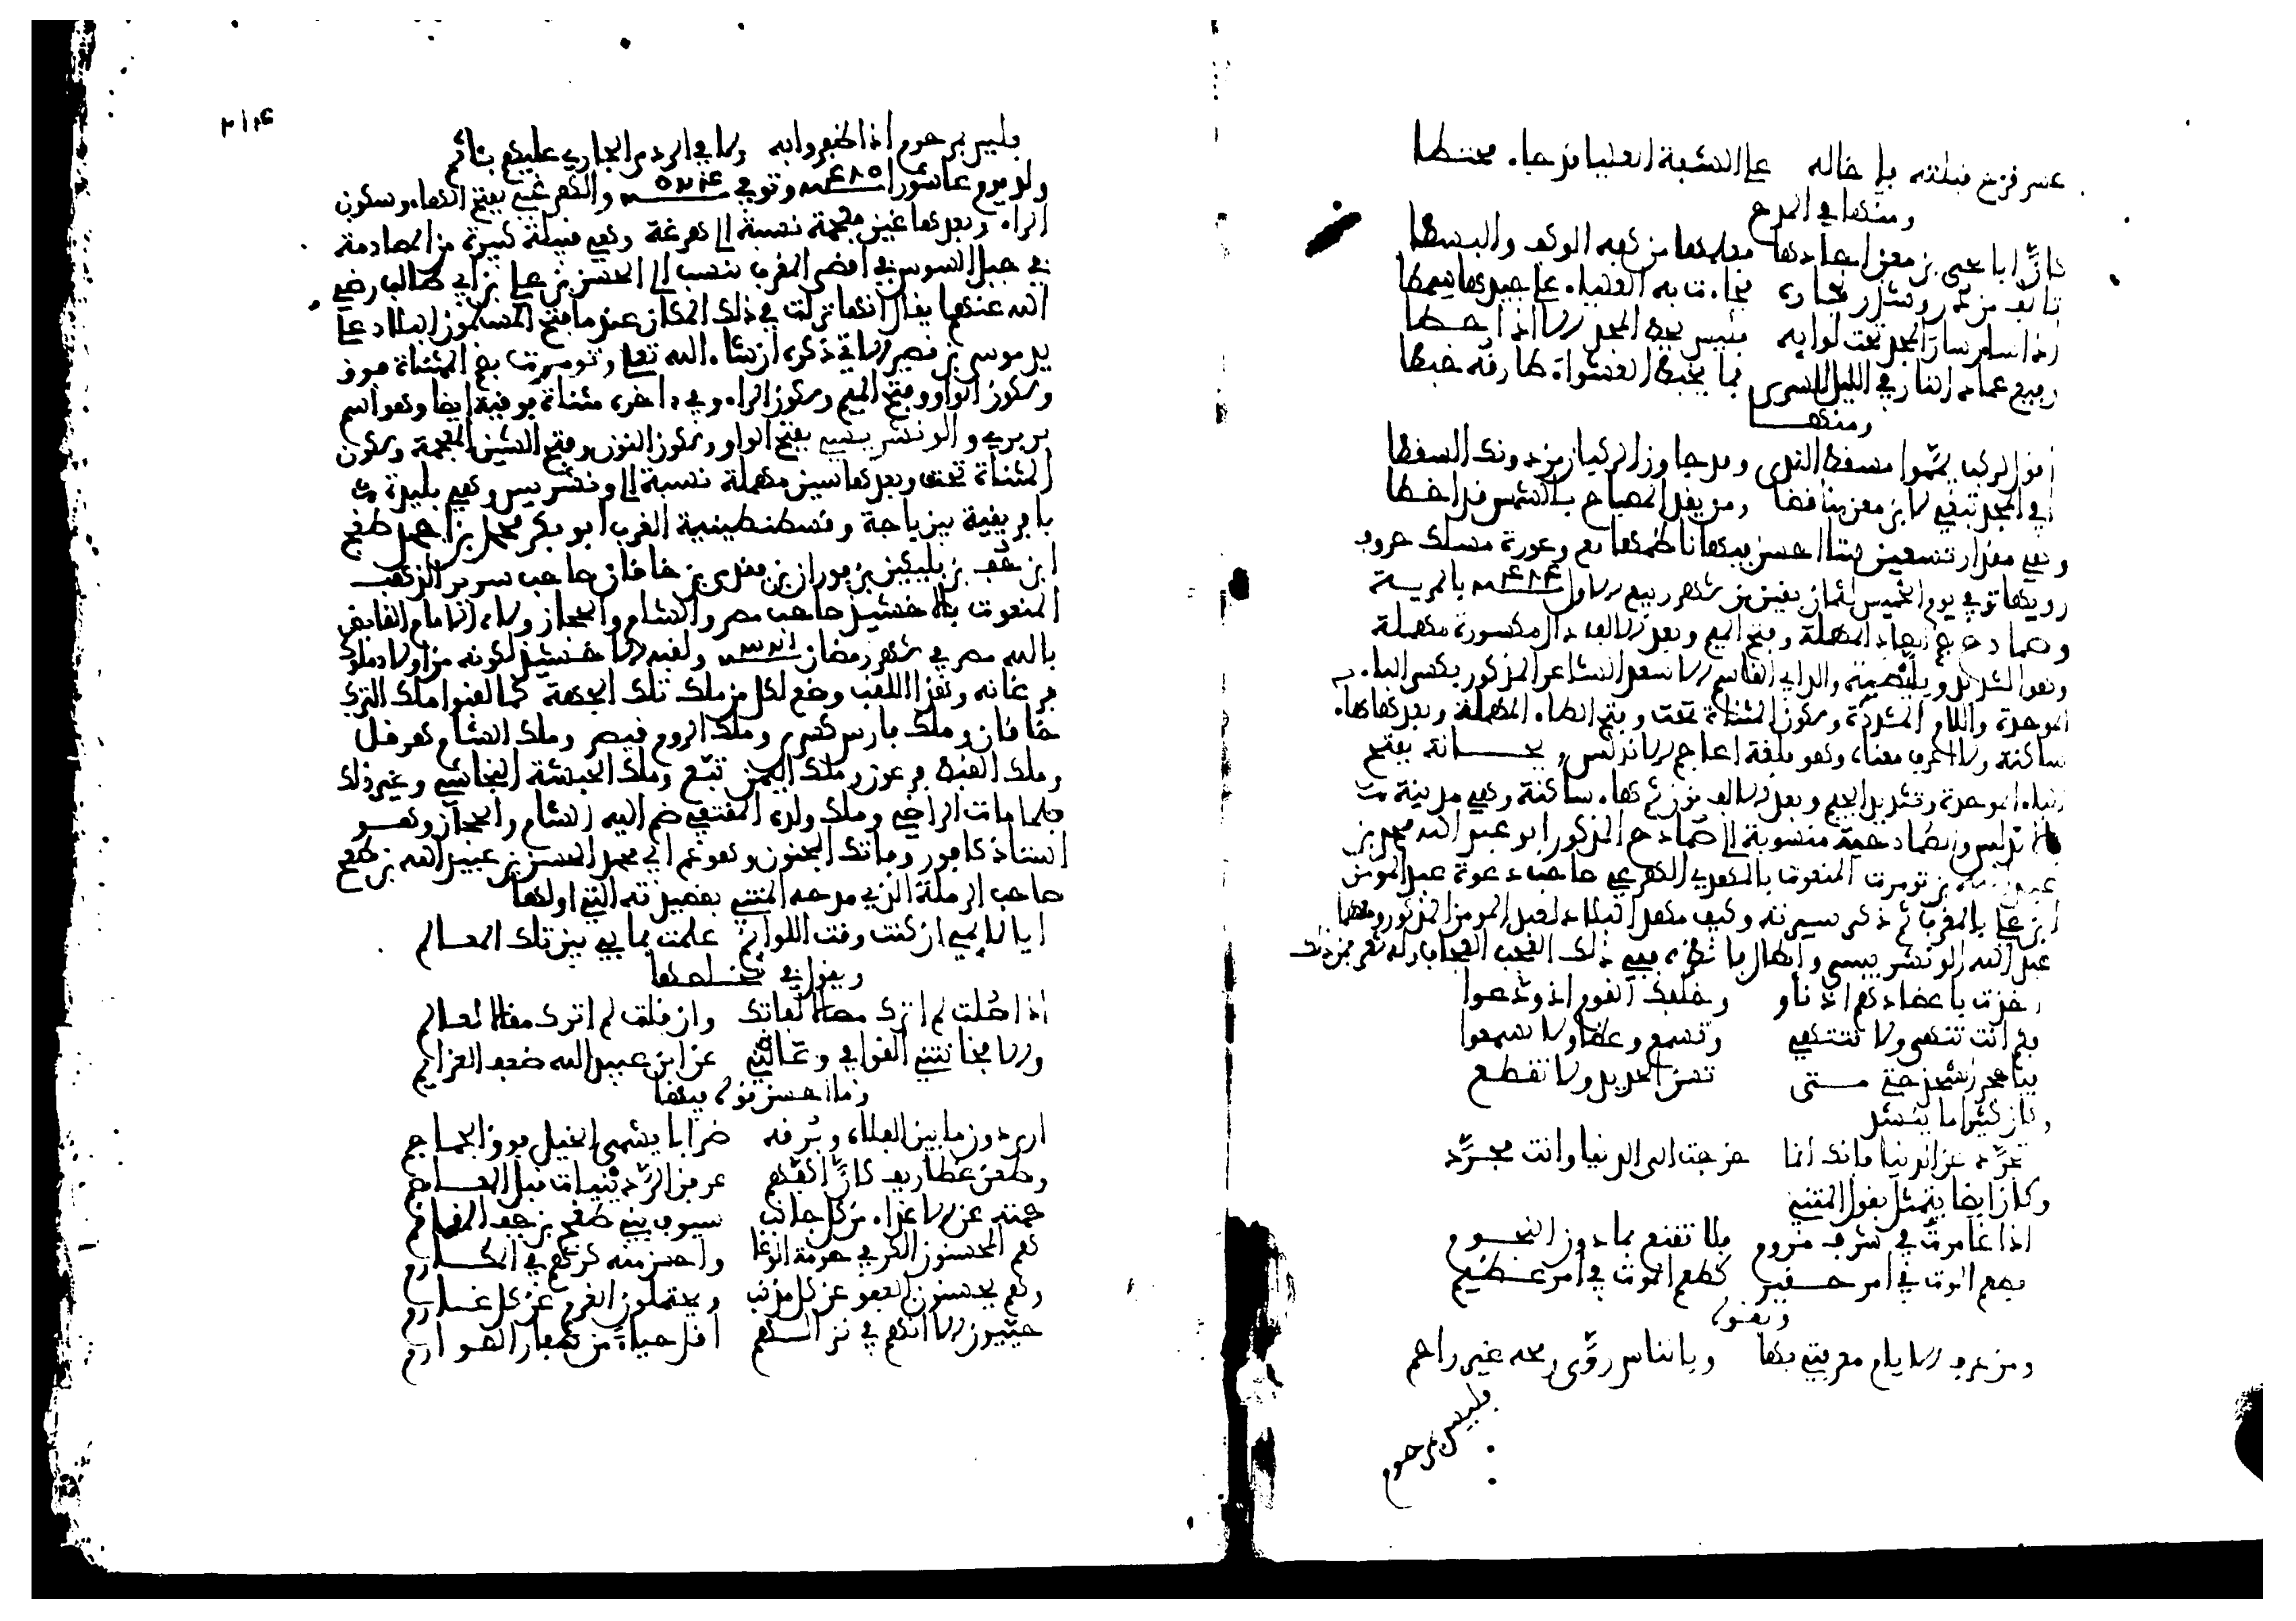 عسى قزح قبلته بل خاله على الشبة العليا فزحا. مختطا
ومنها في المدح
كان ابا يحيى بن معن اجادها فعلمها من كفه الوكف والبسطا
تالف من در وشذر نجاره فجات به العليا. على جيدها سمطا
اذا سار سار المجد تحت لوايه فليس يحط المجد الا اذا حطا
رفيع عماد النار في الليل للسرى فما يخبط العشوا. طارقه خبطا
ومنها
اقول لركب يمموا مسقط الندى وقد جاوز الركبان من دونك السقطا
افي المجد تبغي لابن معن مناقضا ومن يقد المصباح بالشمس قد اخطا
وهي مقدار تسعين بيتا احسن فيها ناظمها مع وعورة مسلك حروف
رويها توفي يوم الخميس لثمان بقين من شهر ربيع الاول ٤٨٤ بالمرية
وصمادح بضم الصاد المهملة وفتح الميم وبعد الالف دال مكسورة مهملة
وهو الشديد وبليطة والد ابي القاسم الاسعد الشاعر المذكور بكسر البا.
الموحدة واللام المشددة وسكون المثناة تحت وفتح الطا. المهملة وبعدها ها.
ساكنة ولا اعرف معناه وهو بلغة اعاجم الاندلس وبجانة بفتح
البا. الموحدة وتشديد الجيم وبعد الالف نون ثم ها. ساكنة وهي مدينة من
الاندلس والصمادحية منسوبة الى صمادح المذكور ابو عبد الله محمد بن
عبد الله بن تومرت المنعوت بالمهدي الهرغي صاحب دعوة عبد المومن
ابن علي بالمغرب ثم ذكر سيرته وكيف مهد البلاد لعبد المومن المذكور
عبد الله الونشريسي واطال بما ذكره ففي ذلك العجب العجاب وله شعر فمن ذلك
اخذت باعضادهم اذ ناو وخلفك القوم اذ ودعوا
فكم انت تنهى ولا تنتهي وتسمع وعظا ولا تسمع
فيا حجر الشحذ حتى متى تسن الحديد ولا تقطع
وكان كثيرا ما ينشد
تجرد عن الدنيا فانك انما خرجت الى الدنيا وانت مجرد
وكان ايضا يتمثل بقول المتنبي
اذا غامرت في شرف مروم فلا تقنع بما دون النجوم
فطعم الموت في امر حقير كطعم الموت في امر عظيم
وبقوله
ومن عرف الايام معرفتي بها وبالناس روى رمحه غير راحم
فليس بمرحوم
٢١٤
فليس بمرحوم اذا ظفروا به ولا في الردى الجاري عليهم بثائم
ولد يوم عاشورا ٤٨٥ وتوفي ٥٢٤ والهرغي بفتح الها. وسكون
الرا. وبعدها غين معجمة نسبة الى هرغة وهي قبيلة كبيرة من المصادمة
في جبل السوس في اقصى المغرب تنسب الى الحسن بن علي بن ابي طالب رضي
الله عنهما يقال انها نزلت في ذلك المكان عند ما فتح المسلمون البلاد على
يد موسى بن نصير الاتي ذكره ان شا. الله تعالى وتومرت بضم المثناة فوق
وسكون الواو وفتح الميم وسكون الرا. وفي داخره مثناة فوقية ايضا وهو اسم
بربري والونشريسي بفتح الواو وسكون النون وفتح الشين المعجمة وسكون
المثناة تحت وبعدها سين مهملة نسبة الى ونشريس وهي بليدة من
بافريقية بين باجة وقسطنطينية الغرب ابو بكر محمد بن احمد طغج
ابن جف بن يلبكين بن فوران بن فوري بن خاقان صاحب سرير الذهب
المنعوت بالاخشيد صاحب مصر والشام والحجاز ولاه الامام القاهر
بالله مصر في شهر رمضان ٣٢١ ولقبه الاخشيد لكونه من اولاد ملوك
فرغانه وهذا اللقب وضع لكل من ملك تلك الجهة كما لقبوا ملك الترك
خاقان وملك فارس كسرى وملك الروم قيصر وملك الشام هرقل
وملك القبط فرعون وملك اليمن تبع وملك الحبشة النجاشي وغير ذلك
فلما مات الراضي وملك ولده المقتفي ضم اليه الشام والحجاز وهو
استاذ كافور وفاتك المجنون وهو عم ابي محمد الحسن بن عبيد الله بن طغج
صاحب الرملة الذي مدحه المتنبي بقصيدته التي اولها
ايا لايمي ان كنت وقت اللوايم علمت بما بي بين تلك المعالم
ويقول في تخلصها
اذا صلت لم اترك مصالا لفاتك وان قلت لم اترك مقالا لعالم
والا فخانتني القوافي وعاقني عن ابن عبيد الله ضعف العزايم
وما احسن قوله فيها
ارى دون ما بين الفلاة وبرقه ضرابا يمشي الخيل فوق الجماجم
وطعن غطاريف كان اكفهم عرفن الردينيات قبل المعاصم
حمته عن الاعدا. من كل جانب سيوف بني طغج بن جف القماقم
هم المحسنون الكر في حومة الوغا واحسن منه كرهم في المكارم
وهم يحسنون العفو عن كل مذنب ويحتملون الغرم عن كل غارم
حييون الا انهم في نزالهم اقل حياء من شفار الصوارم